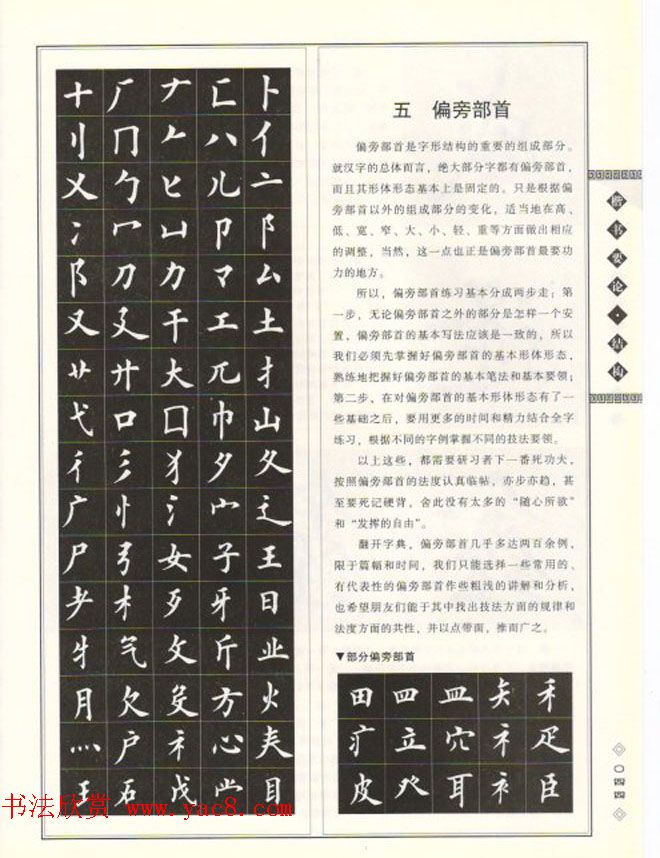 十厂𠂇匚卜
刂冂𠂉八亻
乂勹匕儿亠
冫冖凵卩阝
阝刀力マ厶
又廴干工土
艹廾大兀扌
弋口囗巾山
彳彡犭夕夂
广忄氵宀辶
尸弓女子王
耂木歹牙日
牛气攵斤业
月欠殳方火
灬户礻心𡗗
石戊目
五 偏旁部首
偏旁部首是字形结构的重要的组成部分。
就汉字的总体而言，绝大部分字都有偏旁部首，
而且其形体形态基本上是固定的。只是根据偏
旁部首以外的组成部分的变化，适当地在高、
低、宽、窄、大、小、轻、重等方面做出相应
的调整，当然，这一点也正是偏旁部首最要功
力的地方。
所以，偏旁部首练习基本分成两步走：第
一步，无论偏旁部首之外的部分是怎样一个安
置，偏旁部首的基本写法应该是一致的，所以
我们必须先掌握好偏旁部首的基本形体形态，
熟练地把握好偏旁部首的基本笔法和基本要领；
第二步、在对偏旁部首的基本形体形态有了一
些基础之后，要用更多的时间和精力结合全字
练习，根据不同的字例掌握不同的技法要领。
以上这些，都需要研习者下一番死功夫，
按照偏旁部首的法度认真临帖，亦步亦趋，甚
至要死记硬背，舍此没有太多的“随心所欲”
和“发挥的自由”。
翻开字典，偏旁部首几乎多达两百余例，
限于篇幅和时间，我们只能选择一些常用的、
有代表性的偏旁部首作些粗浅的讲解和分析，
也希望朋友们能于其中找出技法方面的规律和
法度方面的共性，并以点带面，推而广之。
▼部分偏旁部首
田四皿矢禾
疒立穴礻疋
皮癶耳衤臣
楷书要论·结构
〇四四
书法欣赏 www.yac8.com